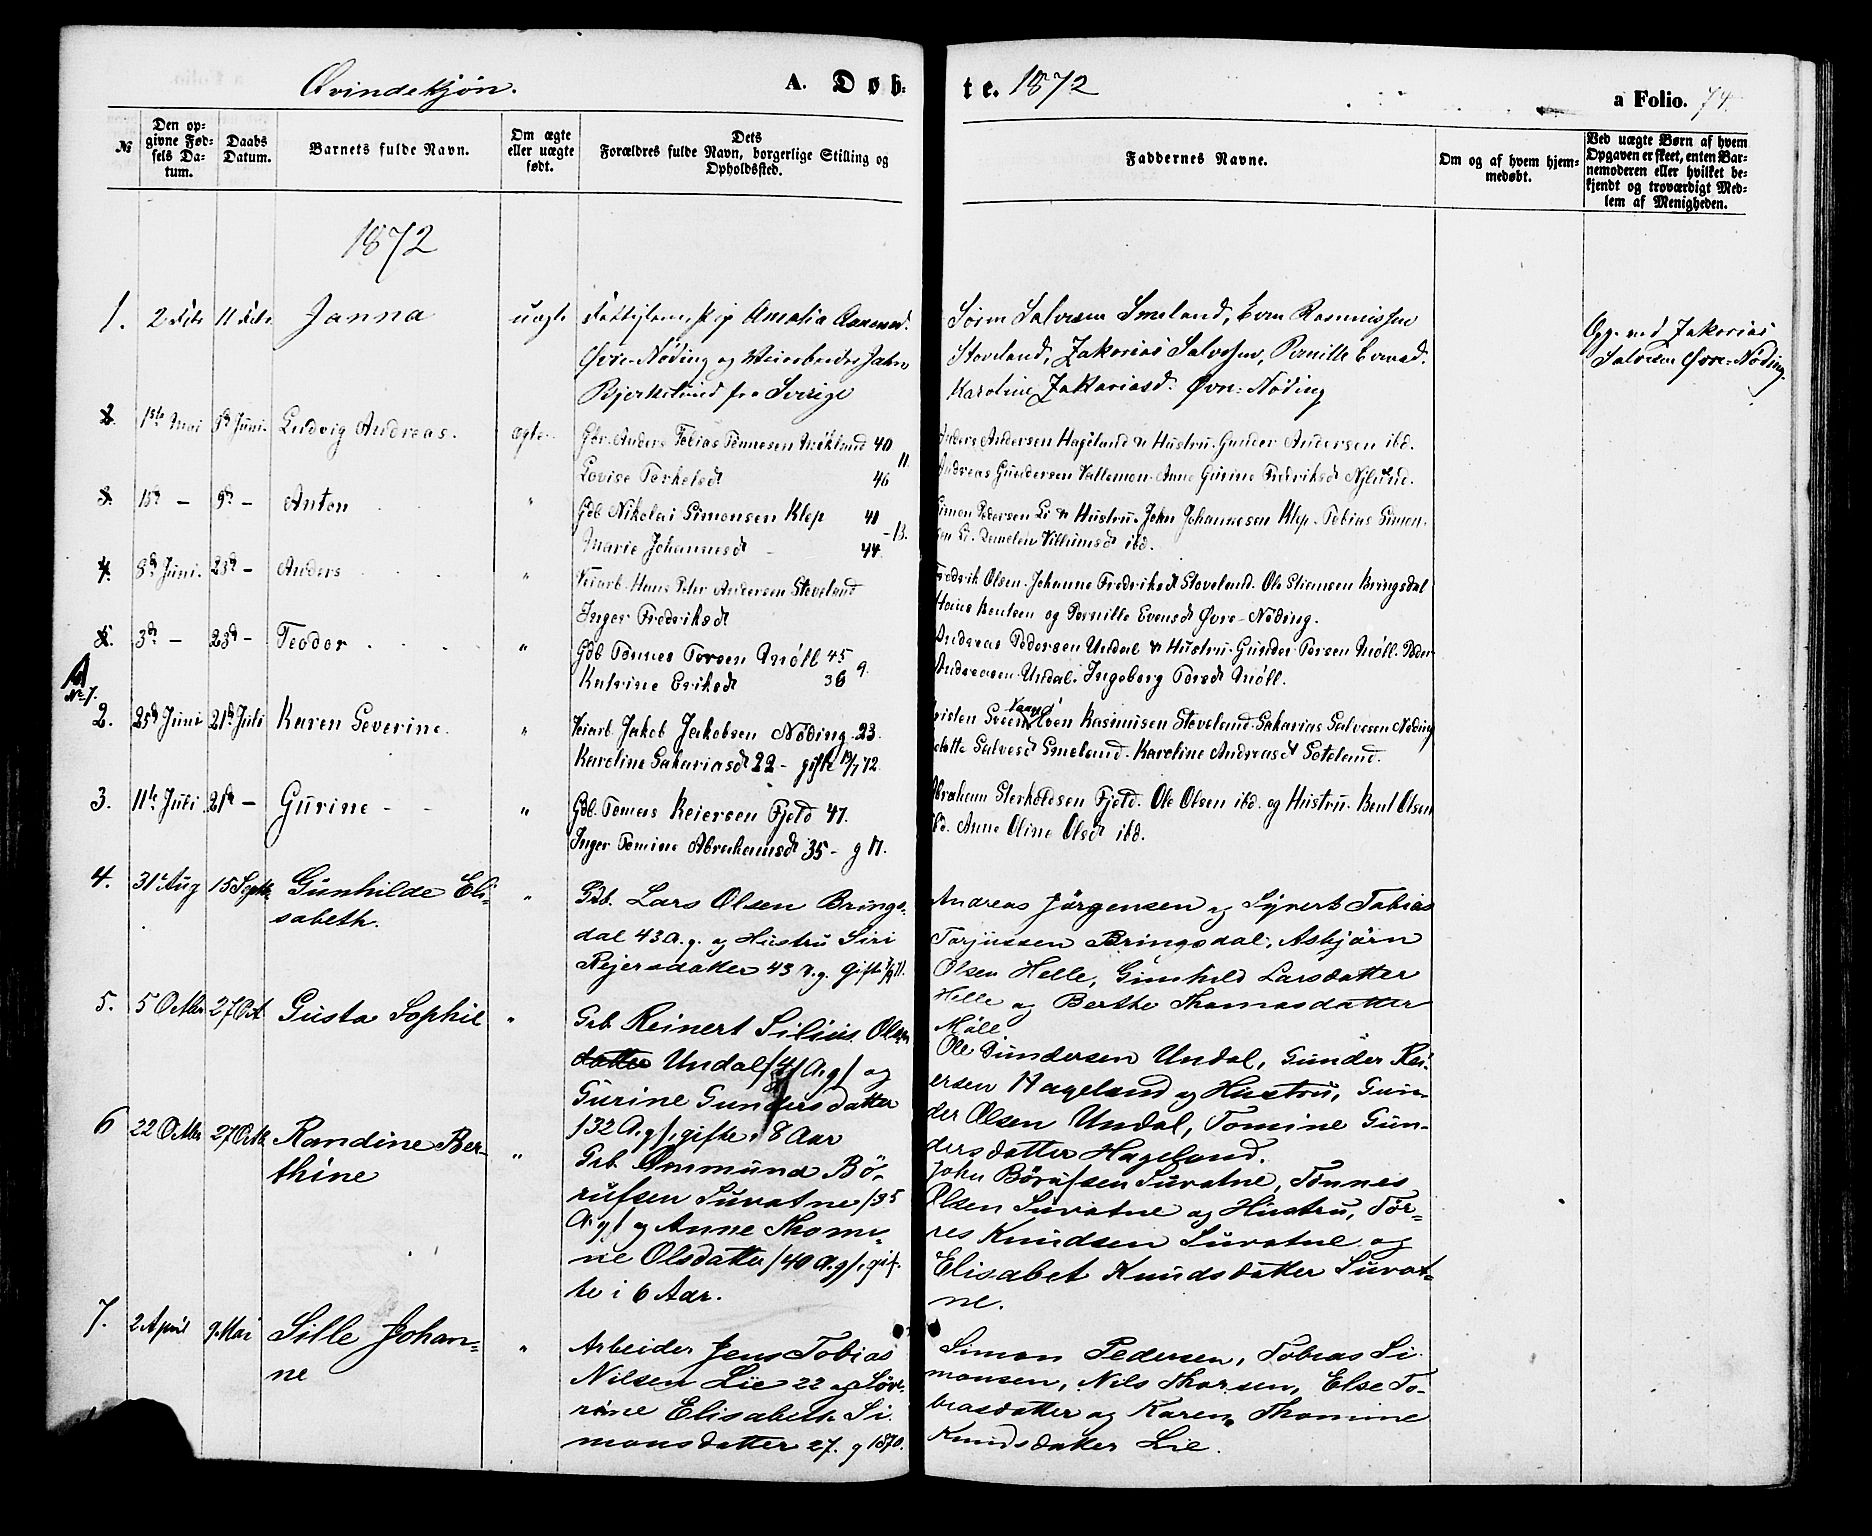 Qvindekjøn. A. Døb-
te. 1872 a Folio. 74
№
Den op-
givne Fød-
sels Da-
tum.
Daabs
Datum.
Barnets fulde Navn.
Om ægte
eller uægte
født.
Dets
Forældres fulde Navn, borgerlige Stilling og
Opholdssted.
Faddernes Navne.
Om og af hvem hjem-
medøbt.
Ved uægte Børn af hvem
Opgaven er skeet, enten Bar-
nemoderen eller hvilket be-
kjendt og troværdigt Med-
lem af Menigheden.
1872
1. 2 11 Janna uægte
pige Amalia
Øvre-Nöding og Veiarbeider
fra Sverige
Sören Salvesen Smeland, Even Rasmussen
Stoveland, Zakarias Salvesen, Pernille Evensd.
Karoline Zakariasd. Øvre-Nöding
Opg. ved Zakarias
Salvesen Øvre-Nöding.
2. 1ste Mai Juni Ludvig Andreas. ægte
Gbr. Anders Tobias Tönnesen 40
Lovise Torkelsdt 46 11.
Anders Andersen Hageland & Hustru. Gunder Andersen ibd.
Andreas Gundersen Vallemon. Anne Gurine Fredriksdt
3. 15de — 9de — Anton "
Gdb. Nikolai Simonsen Klep 41
Marie Johannesdt 44 — 13.
Simon Pedersen Li & Hustru. John Johannesen Klep. Tobias Simon-
sen Li. Villumsdt ibd.
4. 8de Juni. 23de — Anders "
Veiarb. Hans Peter Andersen Stoveland
Inger Fredriksdt
Fredrik Olsen. Johanne Fredriksdt Stoveland. Ole Stiansen Bringsdal
Hans Knutsen og Pernille Evensdt Øvre-Nöding.
5. 3de — 23de — Teodor "
Gdb. Tönnes Torsen Möll 45
Katrine Eriksdt 36 9.
Andreas Pedersen Undal & Hustru. Gunder Torsen Möll. Peder
Andreasen Undal. Ingeborg Torsdt Möll.
No 1.
2. 25de Juni 21de Juli Karen Severine. "
Veiarb. Jakob Jakobsen Nöding. 23.
Karoline Sakariasdt 22 — gifte 72
Even Rasmusen Stoveland. Sakarias Salvesen Nöding
Salvesdt Smeland. Karoline Andreasdt
3. 11te Juli 21de — Gurine — "
Gdb. Tomas Reiersen Fjeld 47.
Inger Tomine Abrahamsdt 35 — g 11.
Abraham Fjeld. Ole Olsen ibd. og Hustru. Bent Olsen
ibd. Anne Oline Olsdt ibd.
4. 31te Aug 15 Septbr. Gunhilde Eli-
sabeth. "
Gdb. Lars Olsen Brings-
dal 43 A. g. og Hustru Siri
Rejersdatter 43 A. g. Gifte
Andreas Jörgensen og Syvert Tobias
Torjussen Bringsdal, Asbjörn
Olsen Helle, Gunhild Larsdatter
Helle og Berthe Thomasdatter
Möll
5. 5 Octbr 27 Oct Gusta Sophie "
Grb. Reinert Silius Olsen
datter Undal /41 A. g/ og
Gurine Gundersdatter
/32 A. g/, gifte i 8 Aar
Ole Gundersen Undal, Gunder Rei-
ersen Hageland og Hustru, Gun-
der Olsen Undal, Tomine Gun-
dersdatter Hageland.
6 22 Octbr 27 Octb Randine Ber-
thine "
Grb. Ommund Bö-
rufsen Survatne /35
A. g/ og Anne Thomi-
ne Olsdatter /40 A. g/, gif-
te i 6 Aar.
John Börufsen Survatne, Tönnes
Olsen Survatne og Hustru, Tör-
res Knudsen Survatne og
Elisabet Knudsdatter Survat-
ne.
7. 2 April 9 Mai Sille Johan-
ne "
Arbeider Jens Tobias
Nilsen Lie 22 og Sörr-
ine Elisabeth Si-
monsdatter 27. g 1870.
Simon Pedersen, Tobias Si-
monsen, Nils Thorsen, Else To-
biasdatter og Karen Thomine
Knudsdatter Lie.